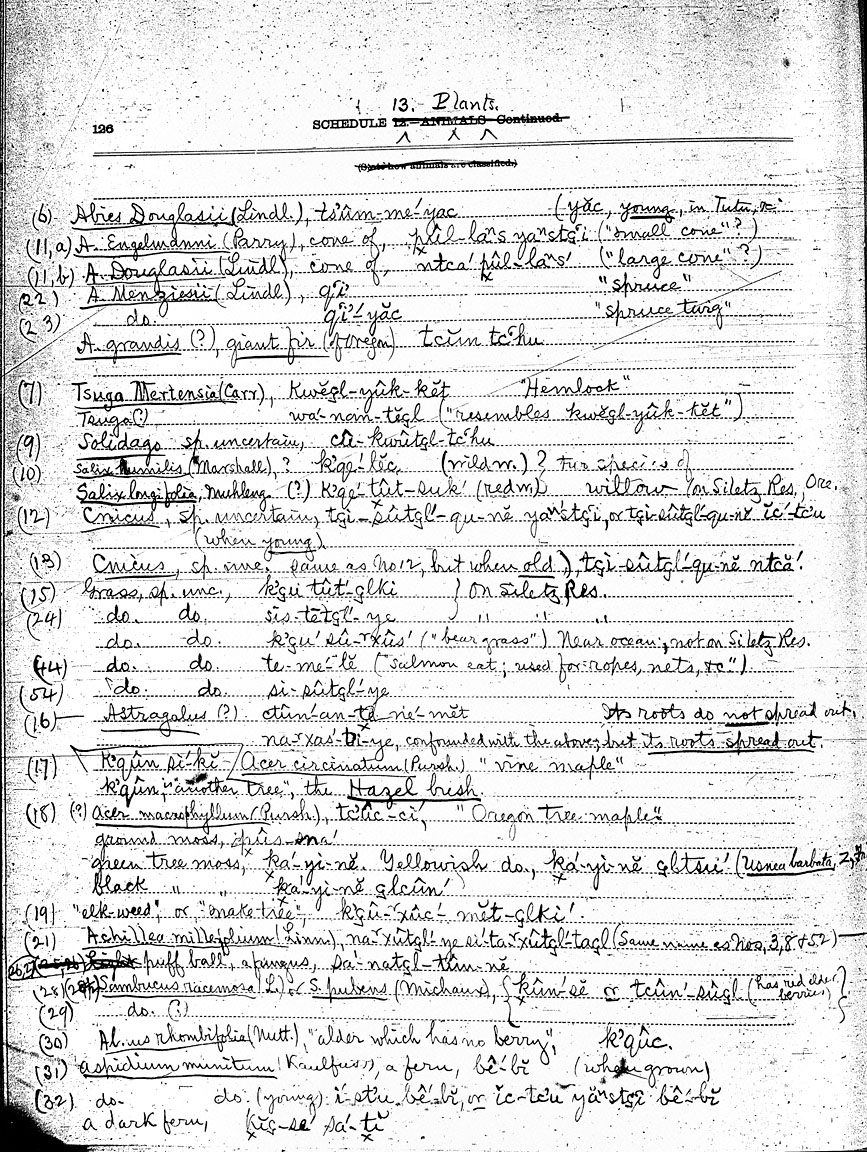 13. Plants.
126 SCHEDULE 12.—ANIMALS—Continued.
(State how animals are classified.)
(6) Abies Douglasii (Lindl.), ts'ûm-me´-yac (yăc, young, in Tutu, &c
(11,a) A. Engelmanni (Parry), cone of, pûl-laⁿs yaⁿstç̌i ("small cone"?)
(11,b) A. Douglasii (Lindl), cone of, ntca´ pûl-laⁿs' ("large cone"?)
(22) A. Menziesii (Lindl), qĭ' "spruce"
(23) do. qĭ'-yăc "spruce twig"
A. grandis (?), giant fir (of Oregon) tcĭm tc'hu
(7) Tsuga Mertensia (Carr), Kwĕgl-yûk-kĕt "Hemlock"
Tsuga (?) wa´-nain-tĕgl ("resembles kwĕgl-yûk-kĕt")
(9) Solidago sp. uncertain, cû-kwûtgl-tc'hu
(10) Salix humilis (Marshall), ? k'qe´-lĕc (wildw.) ? Two species of
Salix longifolia, Muhleng. (?) K'qe´-tût-suk' (redw.) willow on Siletz Res., Ore.
(12) Cnicus, sp. uncertain, tçi-sûtgl'-qu-nĕ yaⁿstçi, or tçi-sûtgl-qu-nĕ ĭc´-tc'u
(when young).
(13) Cnicus, sp. unc. same as No 12, but when old), tçi-sûtgl´-qu-nĕ ntcă'.
(15) Grass, sp. unc., k'gu tût'-glki } On Siletz Res.
(24) do. do. sis-tĕtgl'-ye " "
do. do. k'gu' sû-ʳxûs' ("bear grass") Near ocean, not on Siletz Res.
(44) do. do. te-me´-lĕ ("Salmon eat; used for ropes, nets, &c")
(54) do. do. si-sûtgl'-ye
(16) Astragalus (?) ctûn'-an-tĕ ne´-mĕt Its roots do not spread out.
na-ʳxas'-tĭ-ye, confounded with the above; but its roots spread out.
(17) K'qûn si´-kĭ Acer circinatum (Pursh.) "vine maple"
k'qûn, "another tree", the Hazel bush.
(18) (?) Acer macrophyllum (Pursh.), tc'ûc-ci', "Oregon tree maple".
ground moss, pûs-sna'
green tree moss, ka´-yi-nĕ. Yellowish do., ka´-yi-nĕ çltsu' (Usnea barbata,
black " " ka´-yi-nĕ glcûn'
(19) "elk-weed", or "snake-tree", k'gû-ʳxûc'-mĕt-çlki'.
(21) Achillea millefolium (Linn), na-ʳxûtgl'-ye si´-ta-ʳxûtgl-tagl (Same name as Nos, 3, 8 & 52)
puff ball, a fungus, sa´-natgl-tûn-nĕ
(28) Sambucus racemosa (L.) or S. pubens (Michaux), { kûn'-sĕ or tcûn'-sûgl (has red elder berries)
(29) do. (?)
(30) Alnus rhombifolia (Nutt.), "alder which has no berry", k'qûc.
(31) Aspidium munitum (Kaulfuss), a fern, bĕ´-bĭ (when grown)
(32) do. do. (young) ĭ-st'u bĕ´-bĭ, or ĭc-tc'u yăⁿstçi bĕ´-bĭ
a dark fern, kĭç-se' sa´-tĭ